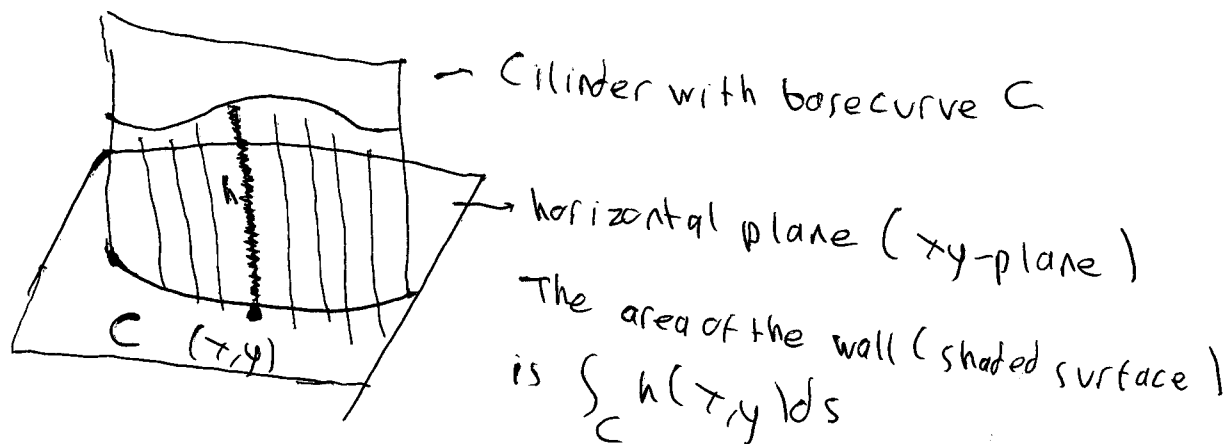 Cilinder with basecurve C
h
horizontal plane (xy-plane)
C (x,y)
The area of the wall (shaded surface)
is ∫_C h(x,y)ds